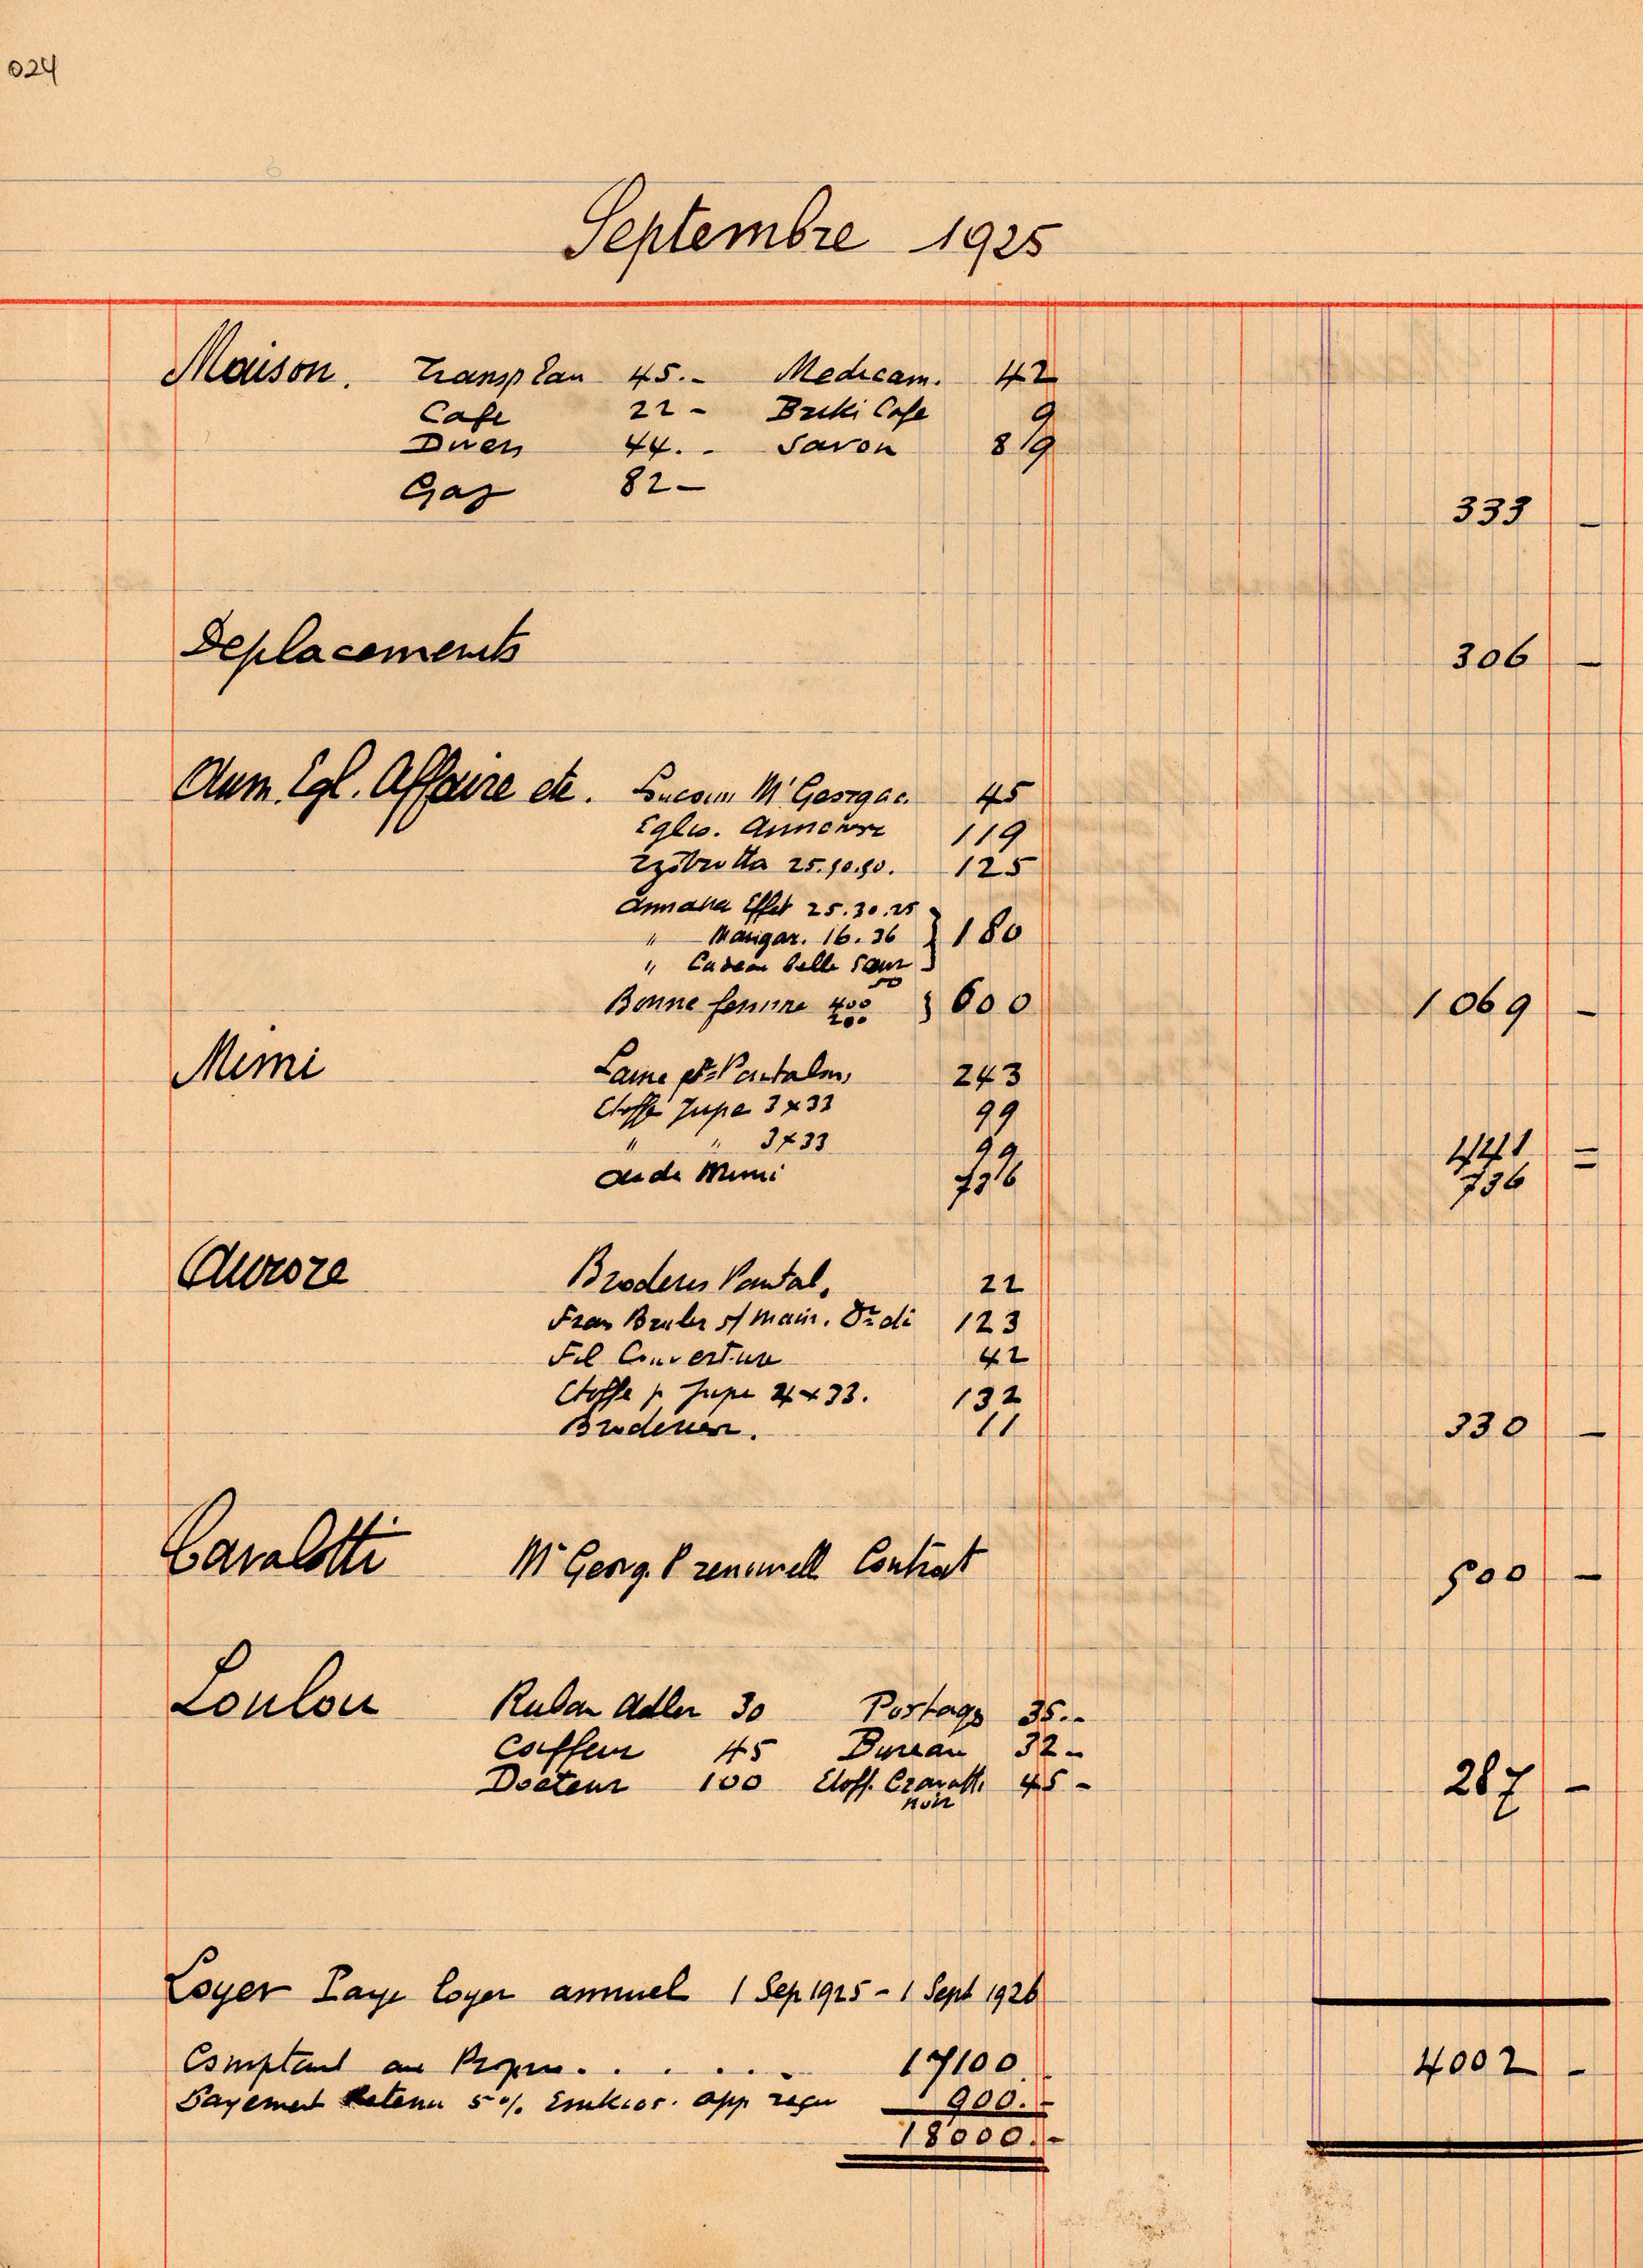 024
Septembre 1925
Maison. Transp Eau 45.- Medicam. 42
Cafe 22 - Briki Cafe 9
Divers 44.- Savon 89
Gaz 82-
333 -
Deplacements 306 -
Aum. Egl. Affaire etc. M Georgac. 45
Eglis. 119
25.50.50. 125
Effet 25.30.25
" Mangar. 16.36 } 180
" Cadeau belle Sœur
50
Bonne femme 400 } 600 1069 -
200
Mimi Laine pr Pantalon, 243
Etoffe Jupe 3x33 99
" " 3x33 99 441 =
Mimi 736 736
Aurore Broderies Pantal. 22
Frais s/ main. 123
Fil Couverture 42
Etoffe p. Jupe 4x33. 132
Broderies. 11 330 -
Cavalotti Mr Georg. P renouvell Contrat 500 -
Loulou Ruban Adler 30 Postage 35.-
Coiffeur 45 Bureau 32-
Docteur 100 Etoff. Cravatte 45 - 287 -
noir
Loyer Paye loyer annuel 1 Sep 1925 - 1 Sept 1926
Comptant au Propri. . . . . . . 17100 4002 -
Payement retenu 5% app reçu 900.-
18000.-